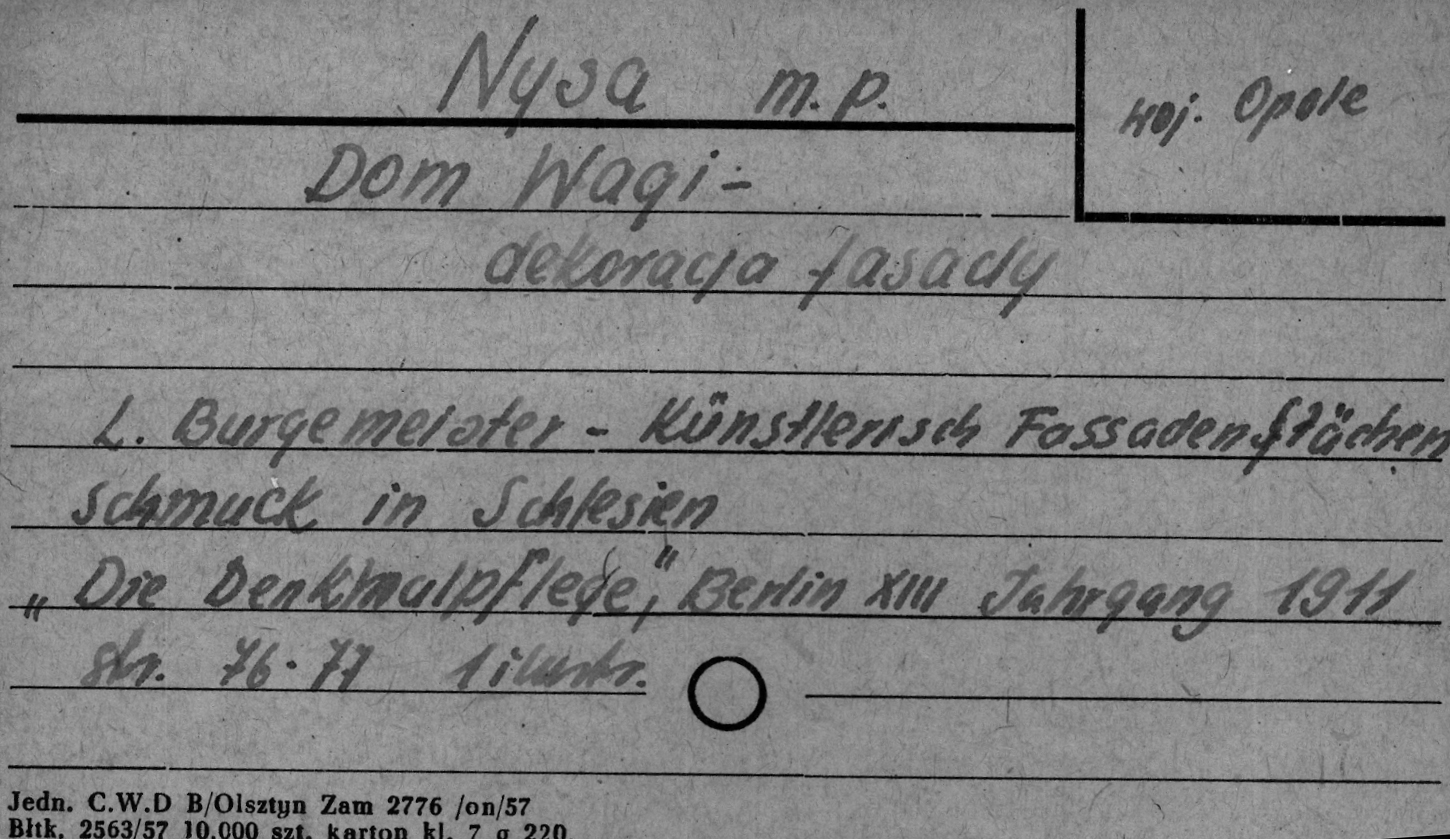 Nysa m.p.
woj. Opole
Dom Wagi -
dekoracja fasady
L. Burgemeister - Künstlerisch Fassadenflächen
schmuck in Schlesien
„Die Denkmalpflege", Berlin XIII Jahrgang 1911
str. 76-77 1 ilustr.
Jedn. C.W.D B/Olsztyn Zam 2776 /on/57
Błtk. 2563/57 10.000 szt. karton kl. 7 g 220